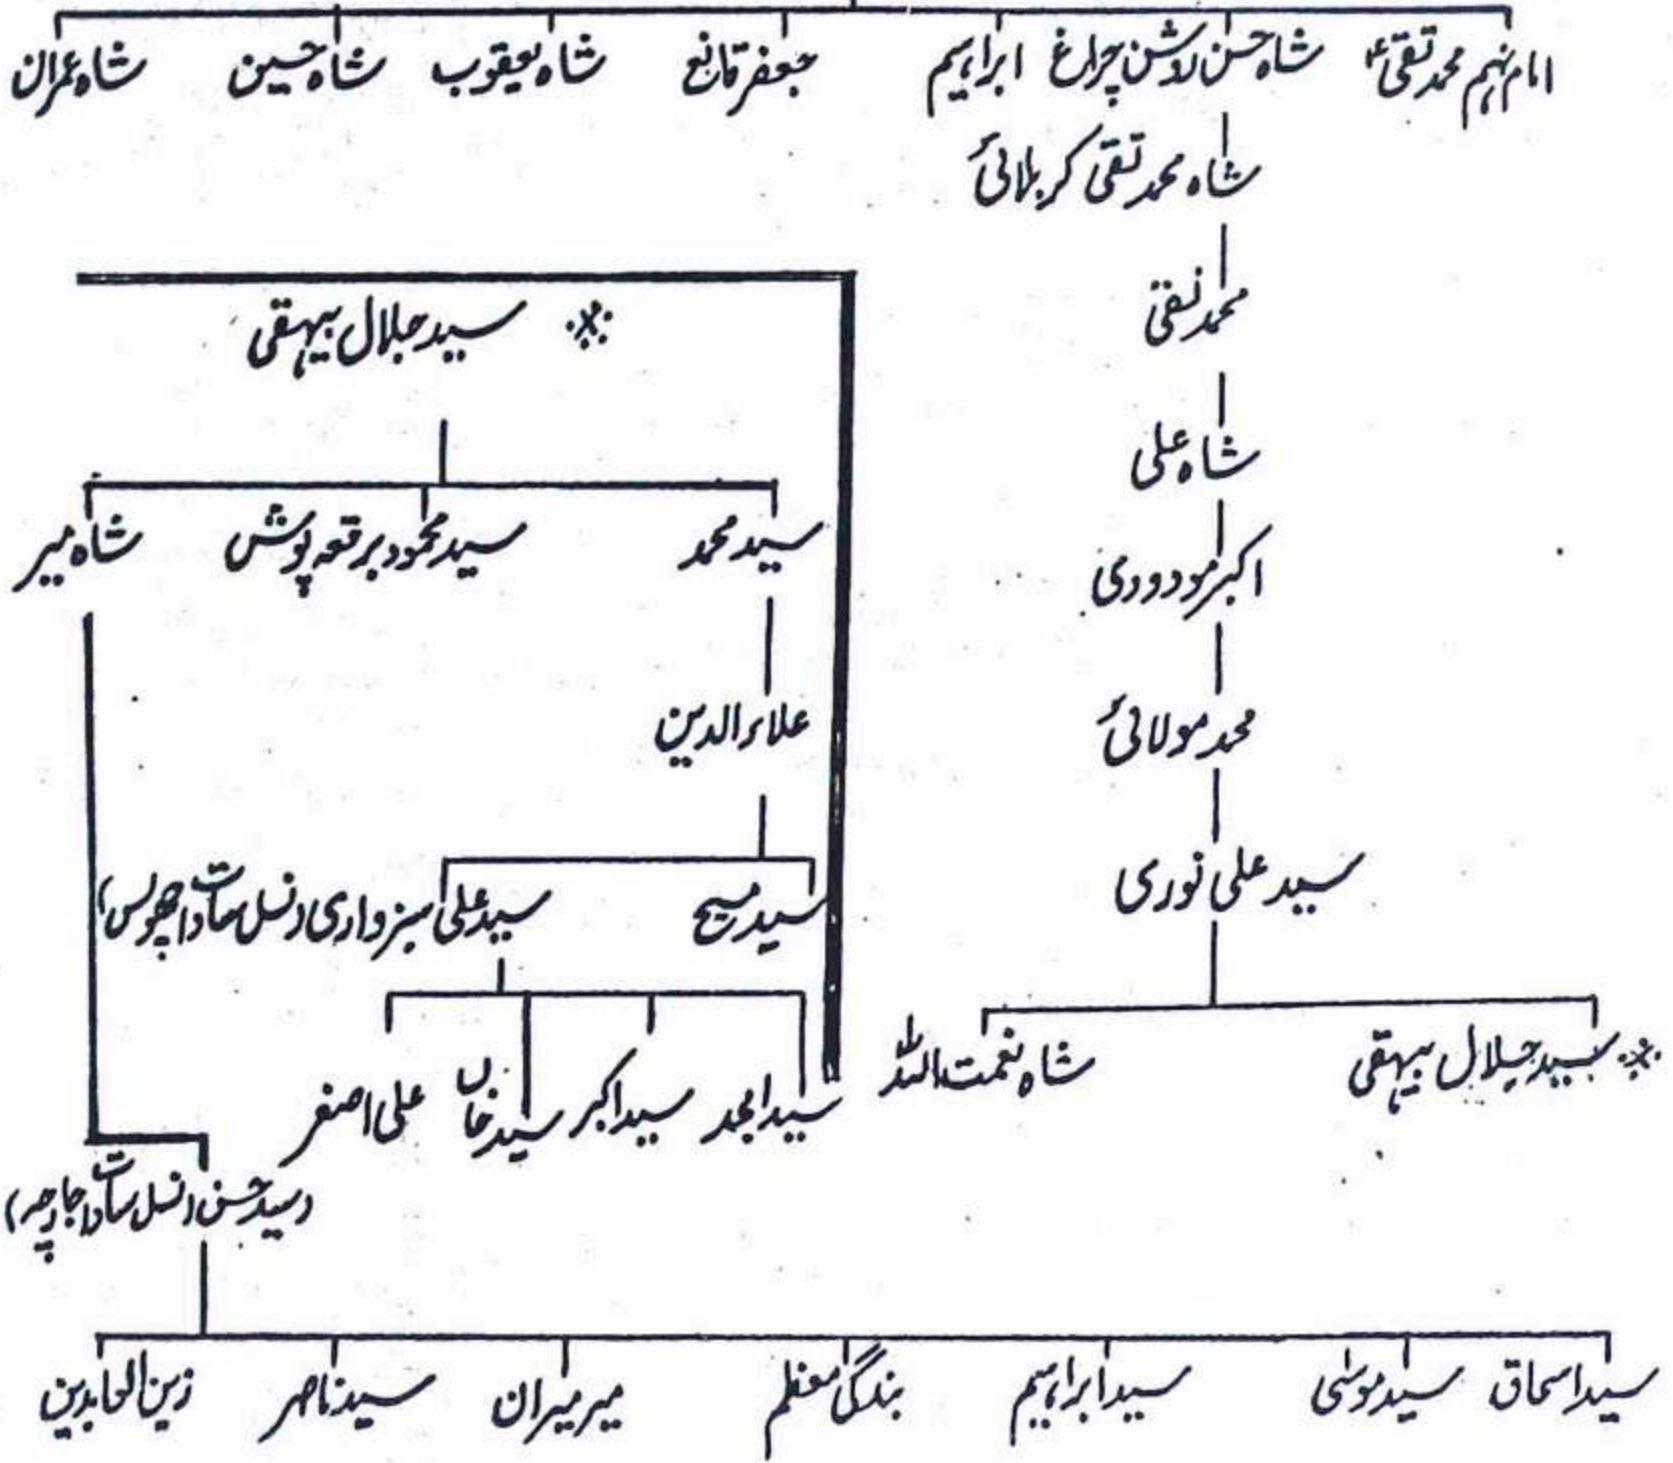 امام نہم محمد تقیؑ شاہ حسن روشن چراغ ابراہیم جعفر قانع شاہ یعقوب شاہ حسین شاہ عمران
شاہ محمد تقی کربلائی
محمد نقی
شاہ علی
اکبر مودودی
محمد مولائی
سید علی نوری
سید جلال بیہقی شاہ نعمت اللہ
سید جلال بیہقی
سید محمد سید محمود برقعہ پوش شاہ میر
علاء الدین
سید مسیح سید علی سبزواری (نسل سادات چھولس)
سید امجد سید اکبر سید خاں علی اصغر
(سید حسن (نسل سادات جارچہ)
سید اسحاق سید موسٰی سید ابراہیم بندگی معظم میر میران سید ناصر زین العابدین